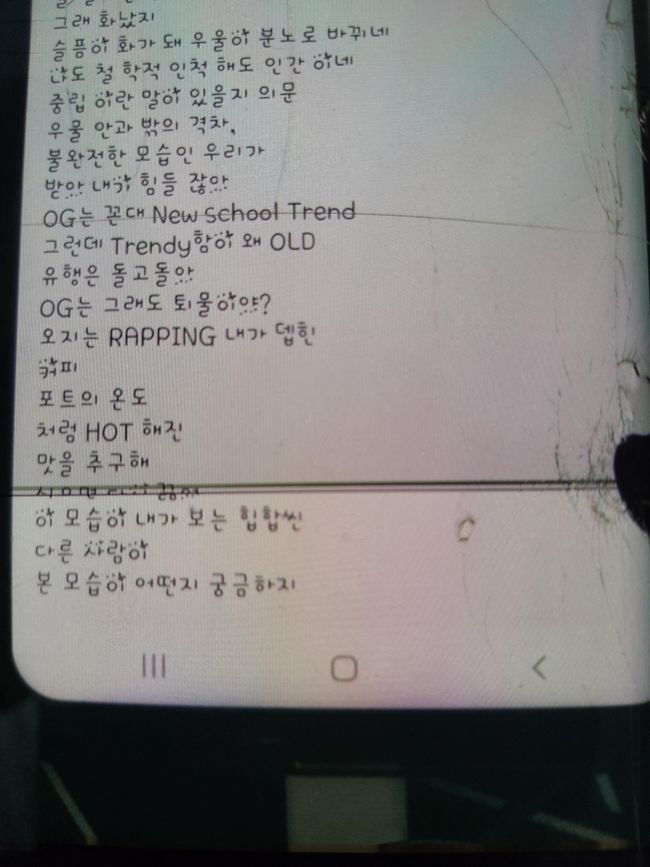 그래 화났지
슬픔이 화가 돼 우울이 분노로 바뀌네
나도 철 학적 인척 해도 인간 이네
중립 이란 말이 있을지 의문
우물 안과 밖의 격차,
불완전한 모습인 우리가
받아 내기 힘들 잖아
OG는 꼰대 New School Trend
그런데 Trendy함이 왜 OLD
유행은 돌고돌아
OG는 그래도 퇴물이야?
오지는 RAPPING 내가 뎁힌
커피
포트의 온도
처럼 HOT 해진
맛을 추구해
이 모습이 내가 보는 힙합씬
다른 사람이
본 모습이 어떤지 궁금하지